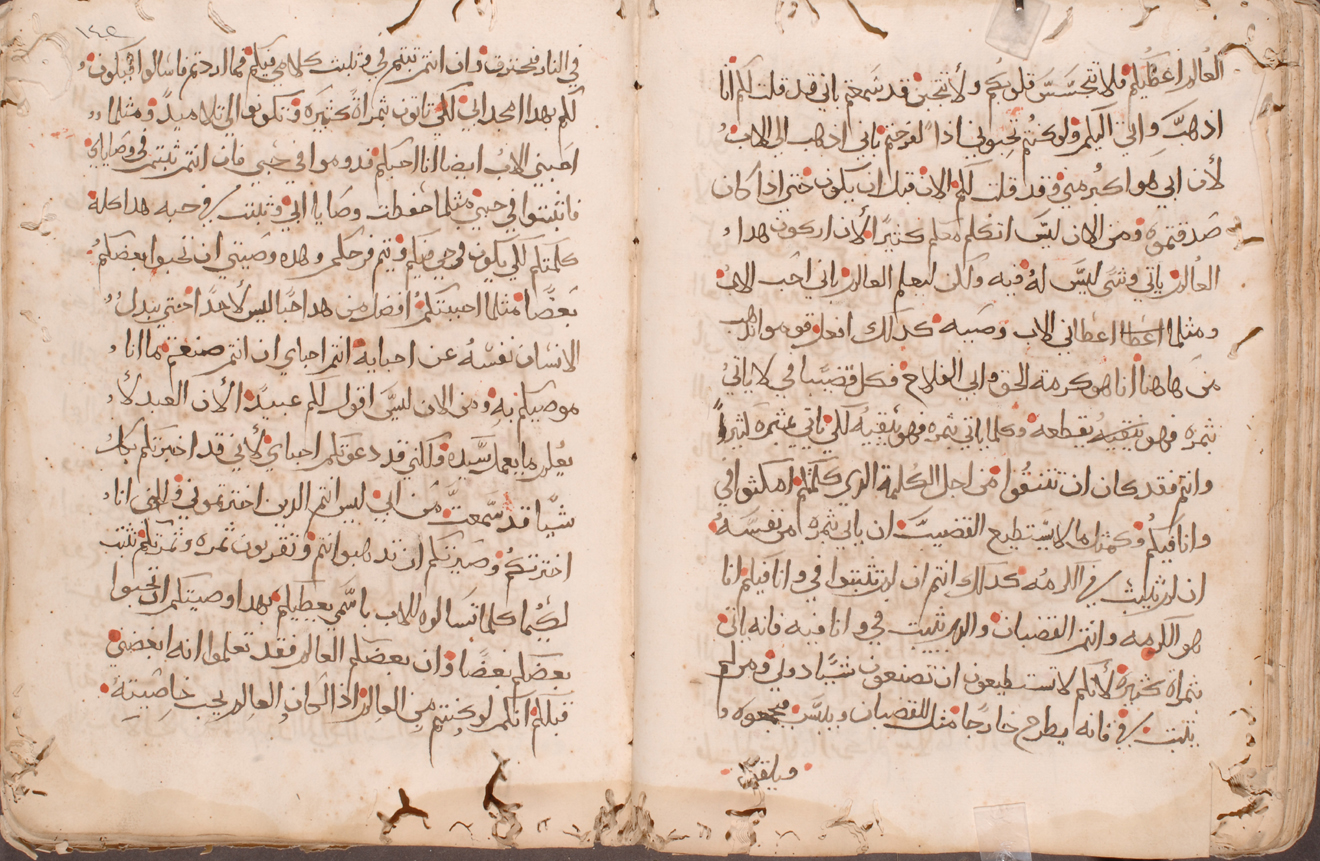 العالم اعطيكم فلا تتجسس قلوبكم ولا تجزع قد سمعتم باني قد قلت لكم انا
اذهب واتي اليكم ولو كنتم تحبوني اذا لفرحتم باني اذهب الى الاب
لأن ابي هو اكبر مني وقد قلت لكم الان قبل ان يكون حتى اذا كان
صدقتموه ومن الان ليس اتكلم معكم كثيرًا لأن اركون هدا
العالم ياتي وشي ليس له فيه ولكن ليعلم العالم باني احب الاب
ومثلما اعطاني الاب وصيه كدلك افعل قوموا نذهب
من هاهنا أنا هو كرمة الحق وابي الفلاح فكل قضيب في لا ياتي
ثمره فهو يقطعه وكلما ياتي ثمره فهو ينقيه لكي ياتي بثمره كثيراً
وانتم فقد كان ان تنقوا من اجل الكلمة الدي كلمتكم امكثوا في
وانا فيكم وكمثل ما لا يستطيع القضيب ان ياتي ثمره من نفسه
ان لم يثبت في الكرمه كدلك انتم ان لم تثبتوا في وانا فيكم انا
هو الكرمه وانتم القضبان والدي يثبت في وانا فيه فانه ياتي
ثمراه كثيره لأنكم لا تستطيعون ان تصنعون شيًا دوني ومن لم
يثبت في فانه يطرح خارجا مثل القضبان وييبس فيجمعوه و
ويلقوه
١٤٥
في النار فيحترق وان انتم ثبتم في وثبت كلامي فيكم فما اردتم فاسالوا فيكون
لكم بهدا امجد ابي لكي تاتون ثمراة كثيره وتكونوا لي تلاميدً ومثلما
احبني الاب ايضا انا احبكم فدوموا في حبي فان انتم ثبتم في وصاياي
فاثبتوا في حبي مثلما حفظت وصايا ابي وثبت في حبه هدا كله
كلمتكم لكي يكون فرحي فيكم ويتم فرحكم وهده وصيتي ان تحبوا بعضكم
بعضًا مثلما احببتكم افضل من هدا حبًا ليس لأحدًا حتى يبدل
الانسان نفسه عن احبايه انتم احباي ان انتم صنعتم ما انا
موصيكم به ومن الان ليس اقول لكم عبيدًا لأن العبد لا
يعلم ما يعمل سيده ولكني قد دعوتكم احباي لأني قد اخبرتكم بكل
شيًا قد سمعت من ابي ليس انتم الدين اخترتموني ولكني انا
اخترتكم وصيرتكم ان تدهبوا انتم وتقربون ثمره وثمرتكم تثبت
لكيما كلما تسالوه للاب باسمي يعطيكم بهدا وصيتكم ان تحبوا
بعضكم بعضًا وان بعضكم العالم فقد تعلموا انه ابغضني
قبلكم انكم لو كنتم من العالم ادا لكان العالم يحب خاصيته